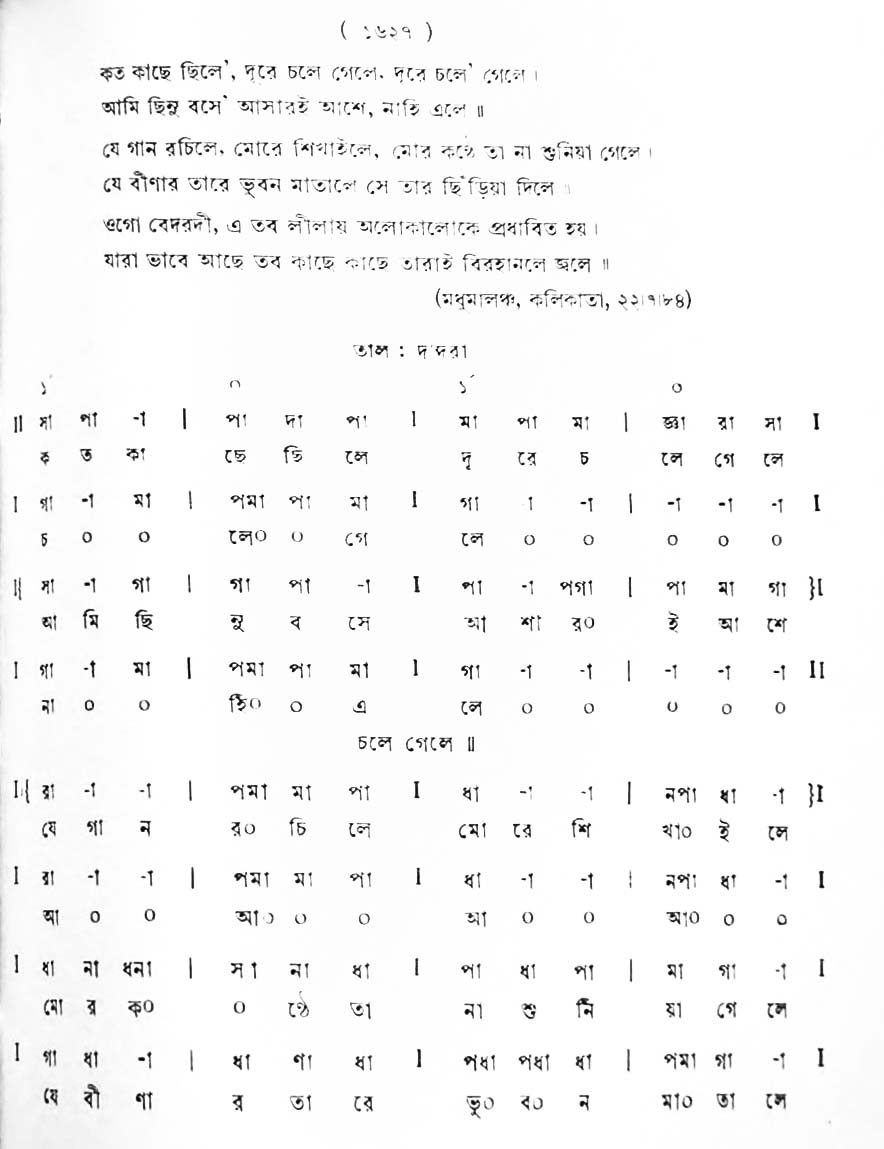 ( ১৬২৭ )
কত কাছে ছিলে', দূরে চলে গেলে, দূরে চলে' গেলে।
আমি ছিনু বসে' আসারই আশে, নাহি এলে॥
যে গান রচিলে, মোরে শিখাইলে, মোর কণ্ঠে তা না শুনিয়া গেলে।
যে বীণার তারে ভুবন মাতালে সে তার ছিঁড়িয়া দিলে॥
ওগো বেদরদী, এ তব লীলায় অলোকালোকে প্রধাবিত হয়।
যারা ভাবে আছে তব কাছে কাছে তারাই বিরহানলে জ্বলে॥
(মধুমালঞ্চ, কলিকাতা, ২২।৭।৮৪)
তাল : দাদরা
১´ ০ ১´ ০
॥ সা পা -া | পা দা পা I মা পা মা | জ্ঞা রা সা I
ক ত কা ছে ছি লে দূ রে চ লে গে লে
I গা -া মা | পমা পা মা I গা া -া | -া -া -া I
চ ০ ০ লে০ ০ গে লে ০ ০ ০ ০ ০
॥{ সা -া গা | গা পা -া I পা -া পগা | পা মা গা }I
আ মি ছি নু ব সে আ শা র০ ই আ শে
I গা -া মা | পমা পা মা I গা -া -া | -া -া -া II
না ০ ০ হি০ ০ এ লে ০ ০ ০ ০ ০
চলে গেলে॥
I{ রা -া -া | পমা মা পা I ধা -া -া | নপা ধা -া }I
যে গা ন র০ চি লে মো রে শি খা০ ই লে
I রা -া -া | পমা মা পা I ধা -া -া | নপা ধা -া I
আ ০ ০ আ০ ০ ০ আ ০ ০ আ০ ০ ০
I ধা না ধনা | সা না ধা I পা ধা পা | মা গা -া I
মো র ক০ ০ ণ্ঠে তা না শু নি য়া গে লে
I গা ধা -া | ধা ণা ধা I পধা পধা ধা | পমা গা -া I
যে বী ণা র তা রে ভু০ ব০ ন মা০ তা লে